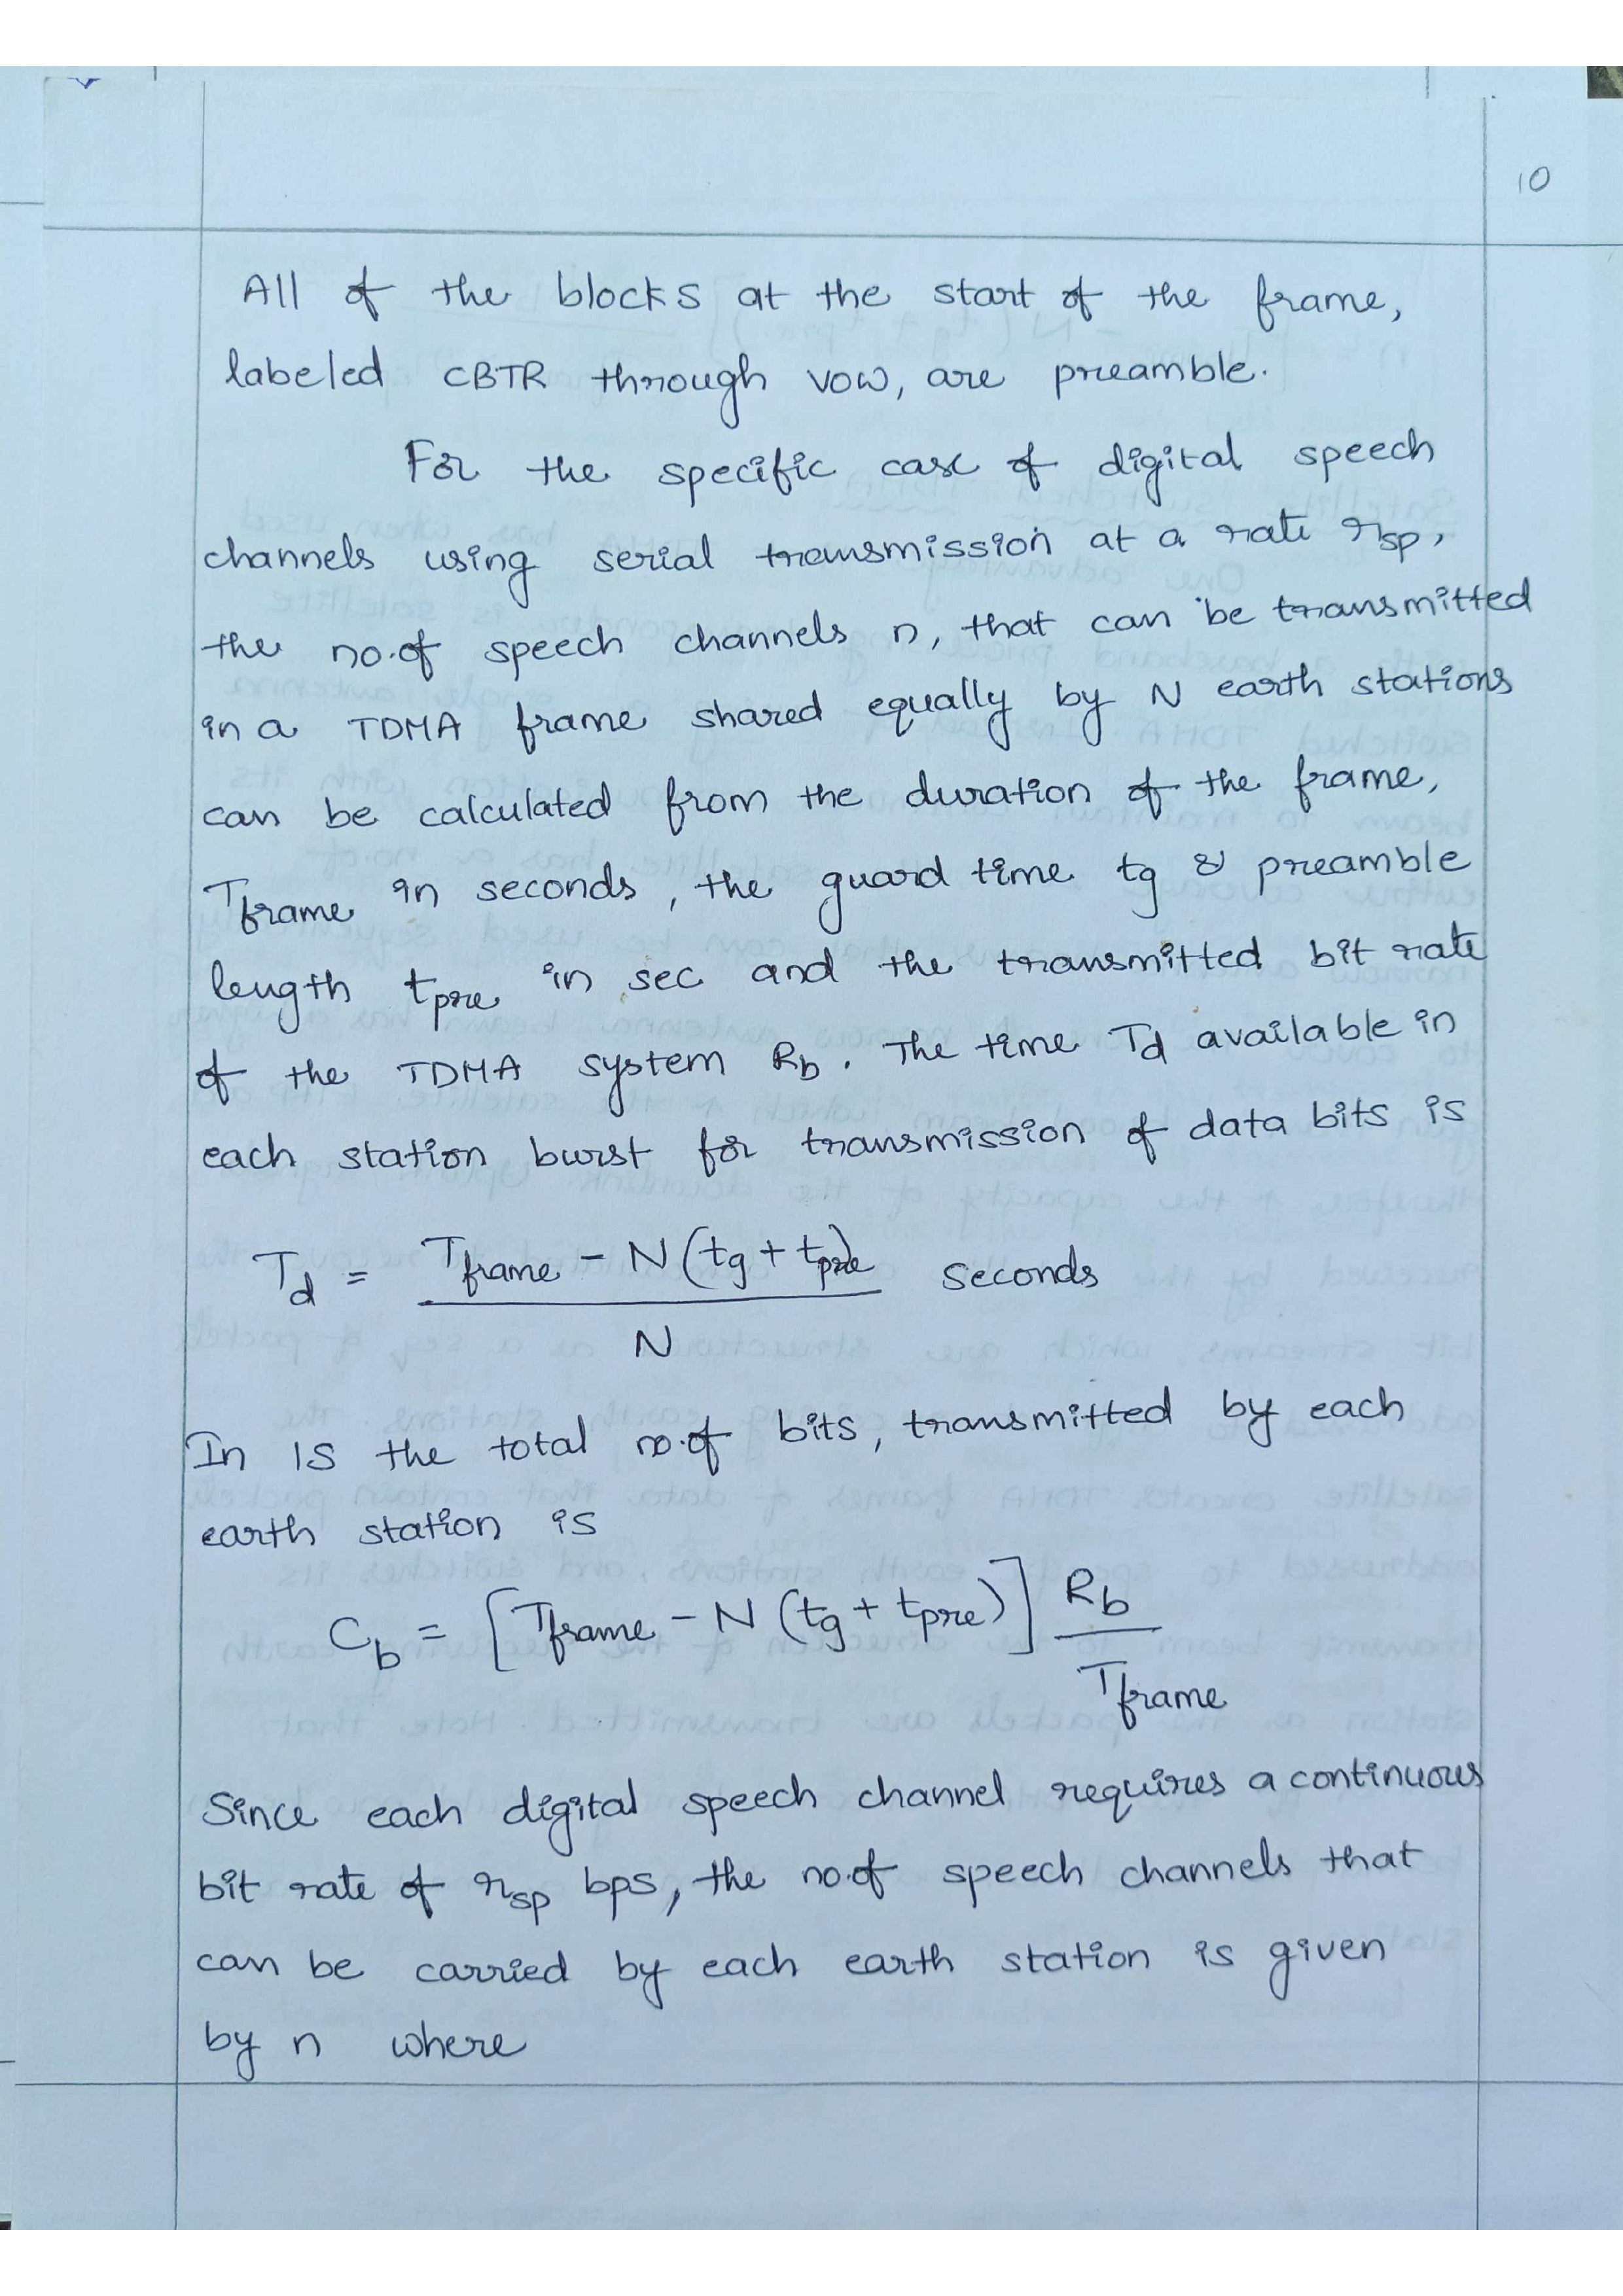 10
All of the blocks at the start of the frame,
labeled CBTR through VOW, are preamble.
For the specific case of digital speech
channels using serial transmission at a rate rsp,
the no.of speech channels n, that can be transmitted
in a TDMA frame shared equally by N earth stations
can be calculated from the duration of the frame,
Tframe in seconds, the guard time tg & preamble
length tpre in sec and the transmitted bit rate
of the TDMA system Rb. The time Td available in
each station burst for transmission of data bits is
Td = Tframe - N(tg + tpre) / N seconds
In 1S the total no.of bits, transmitted by each
earth station is
Cb = [Tframe - N (tg + tpre)] Rb / Tframe
Since each digital speech channel requires a continuous
bit rate of rsp bps, the no.of speech channels that
can be carried by each earth station is given
by n where